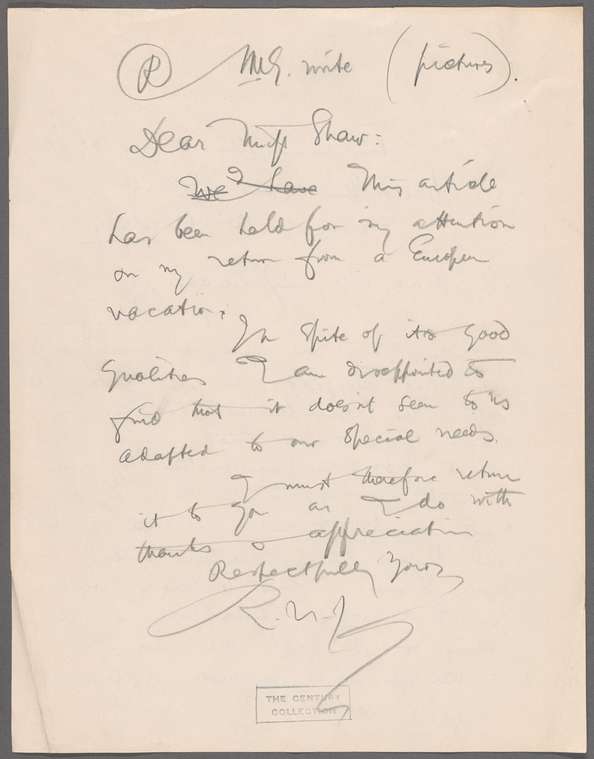 (R) M.G. write (pictures).
Dear Miss Shaw:
We I have This article
has been held for my attention
on my return from a European
vacation.
In spite of its good
qualities I am disappointed to
find that it doesn't seem to us
adapted to our special needs.
I must therefore return
it to you as I do with
thanks & appreciation
Respectfully Yours
R.U.J.
THE CENTURY
COLLECTION